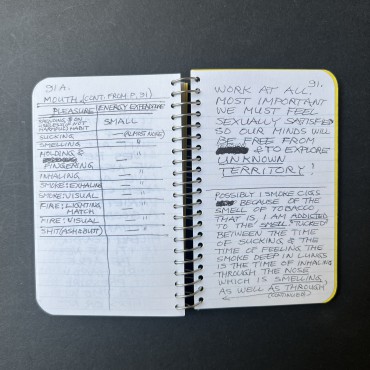 91A.
MOUTH. (CONT. FROM P. 91)
PLEASURE ENERGY EXPENDITURE
HABIT SMALL
SUCKING — (ALMOST NONE)
SMELLING — "
HOLDING &
FINGERING — "
INHALING — "
SMOKE: EXHALING — "
SMOKE: VISUAL — "
FIRE: LIGHTING
MATCH — "
FIRE: VISUAL — "
SHIT (ASH & BUTT) — "
91.
WORK AT ALL.
MOST IMPORTANT
WE MUST FEEL
SEXUALLY SATISFIED
SO OUR MINDS WILL
BE FREE FROM
& TO EXPLORE
UNKNOWN
TERRITORY!
POSSIBLY I SMOKE CIGS
BECAUSE OF THE
SMELL OF TOBACCO
THAT IS, I AM ADDICTED
TO THE SMELL TUCKED
BETWEEN THE TIME
OF SUCKING & THE
TIME OF FEELING THE
SMOKE DEEP IN LUNGS
IS THE TIME OF INHALING
THROUGH THE NOSE
WHICH IS SMELLING,
AS WELL AS THROUGH
(CONTINUED)